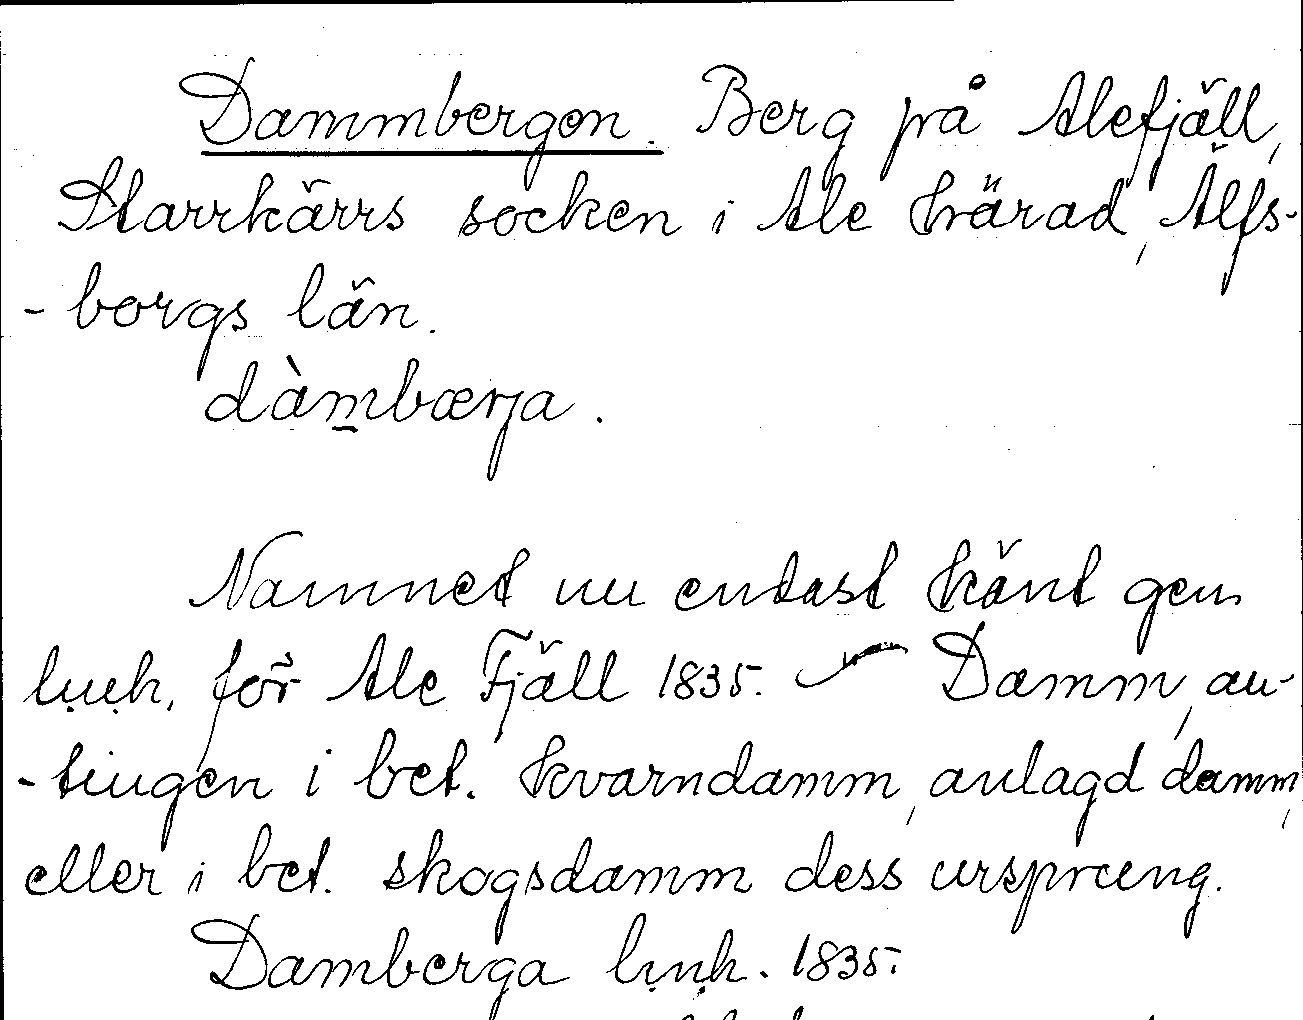 Dammbergen. Berg på Alefjäll,
Starrkärrs socken i Ale härad, Älfs-
- borgs län.
dàmbærja.
Namnet nu endast känt gen
luk. för Ale Fjäll 1835. Damm, an-
- tingen i bet. kvarndamm, anlagd damm,
eller i bet. skogsdamm dess ursprung.
Damberga luk. 1835.